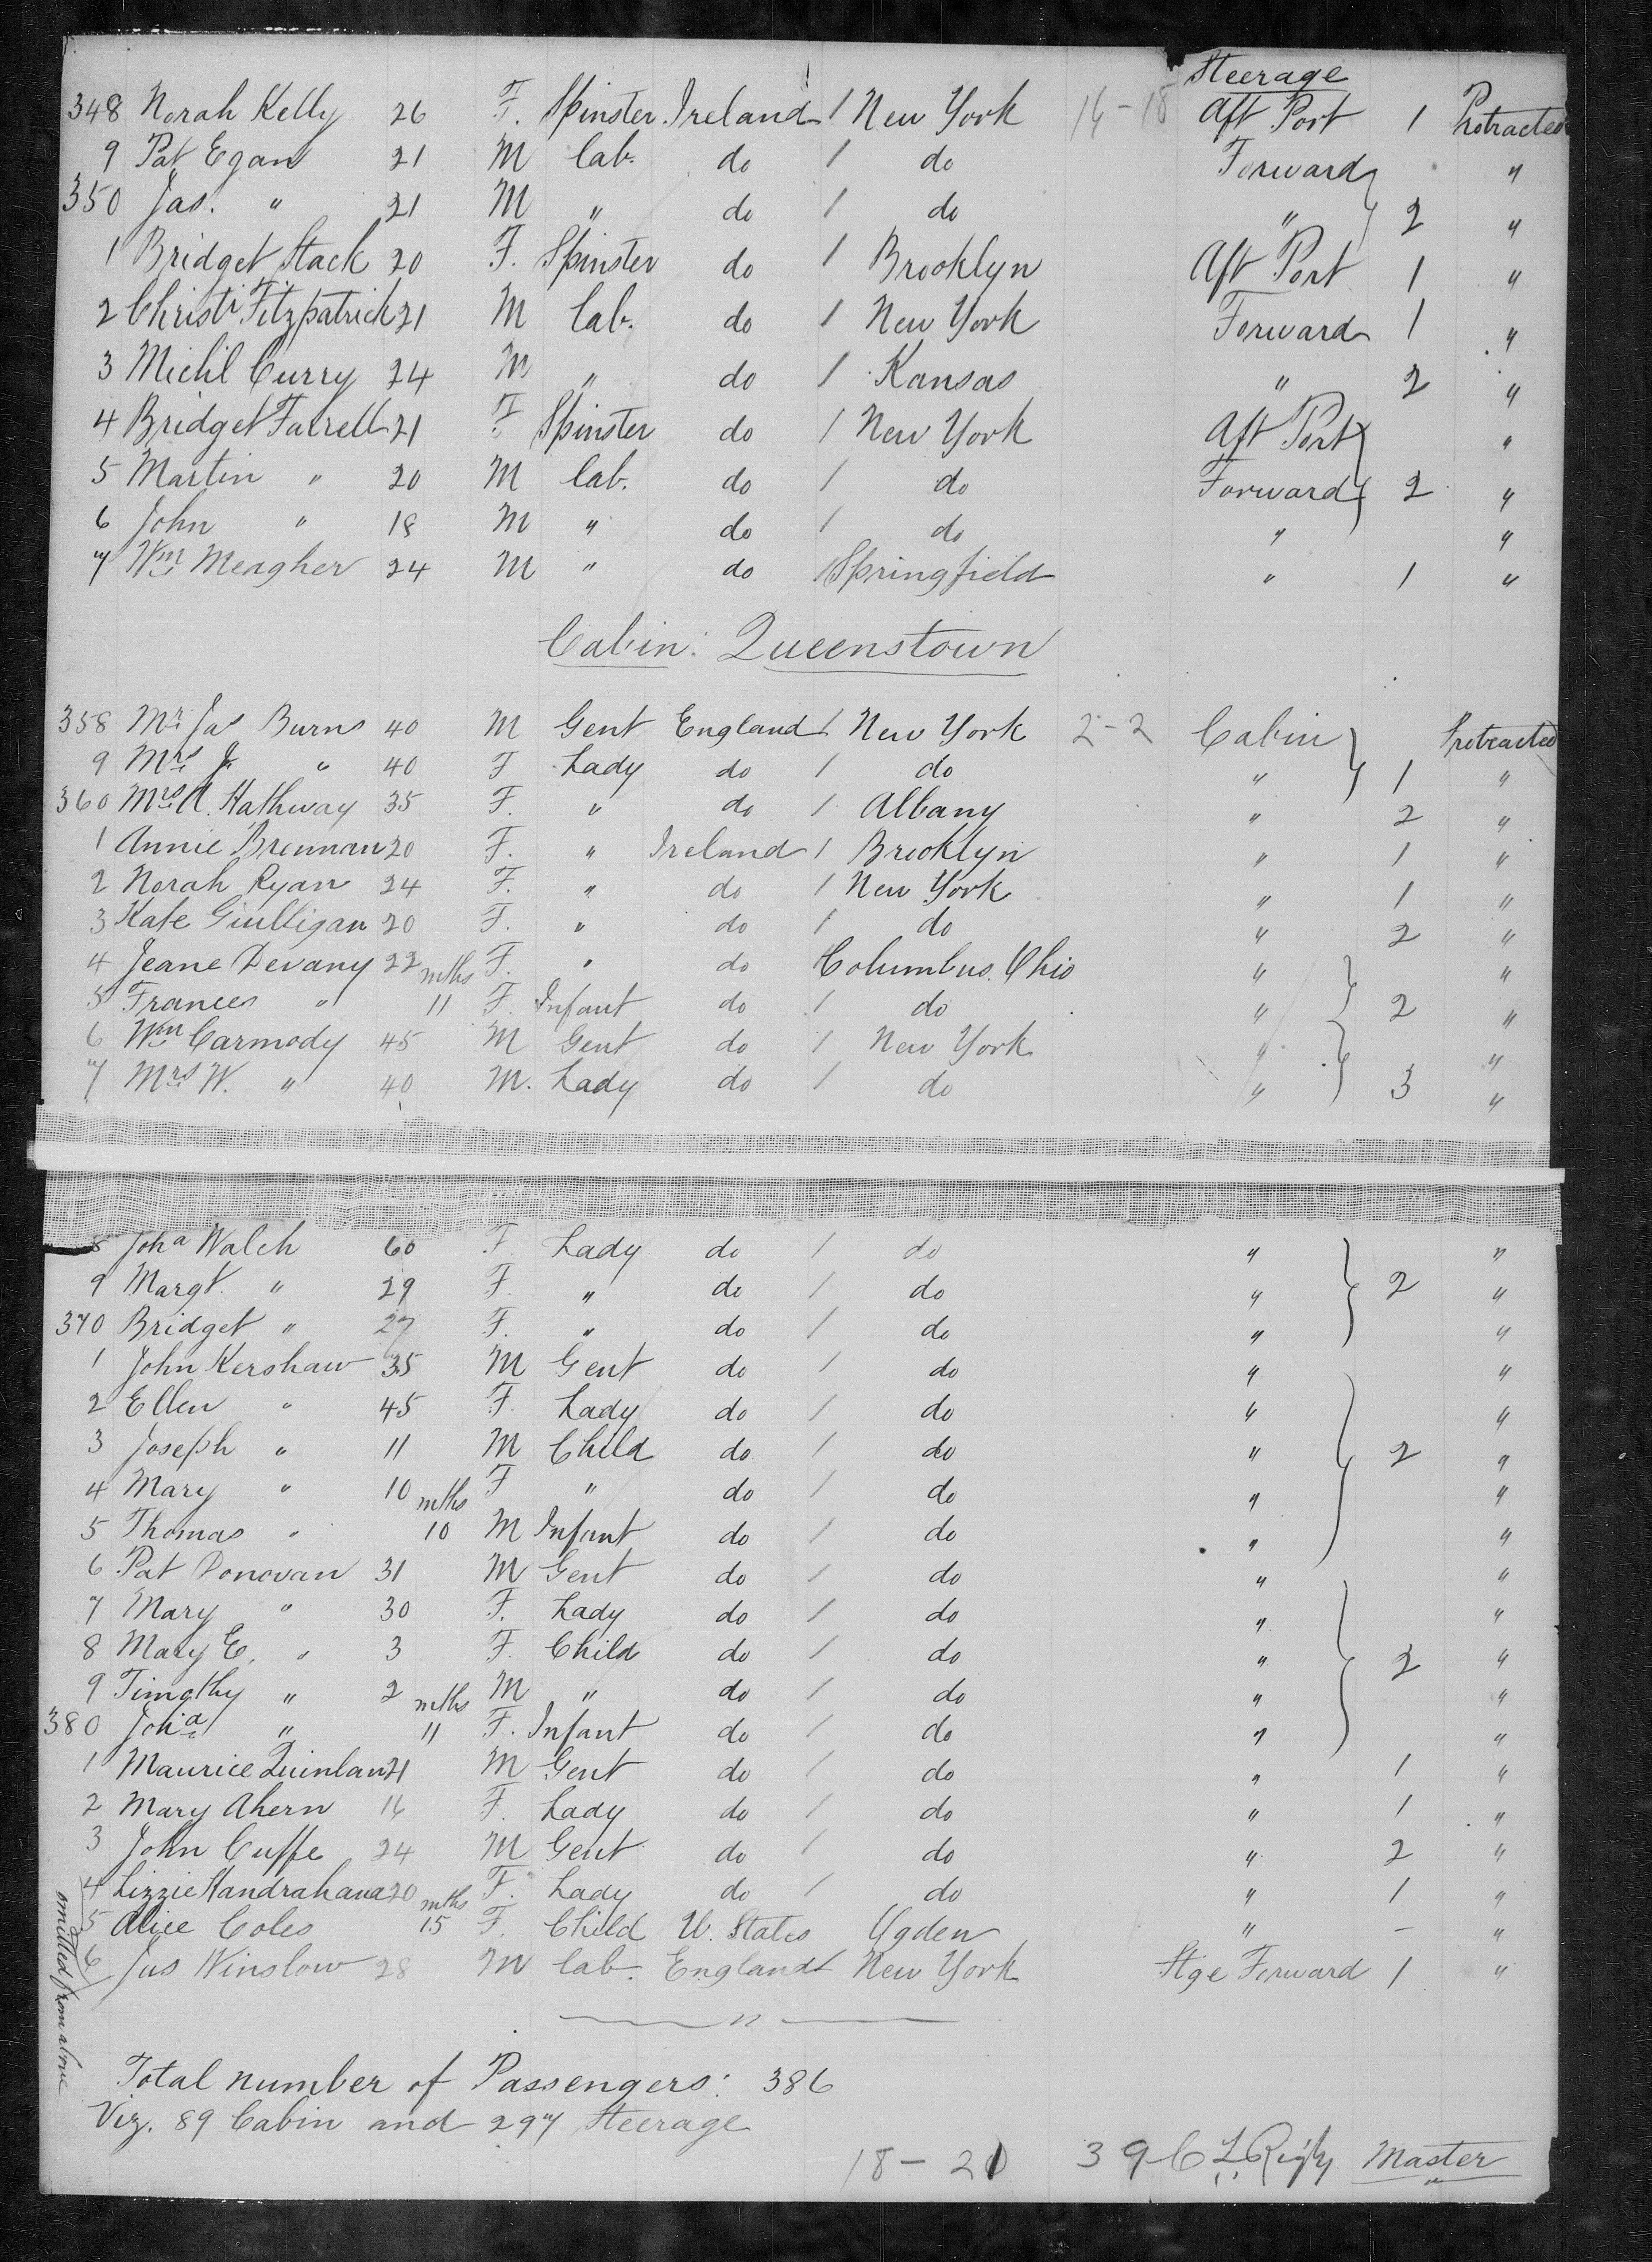 Steerage
348 Norah Kelly 26 F. Spinster Ireland 1 New York 14-18 Aft Port 1 Protracted
9 Pat Egan 21 M Lab. do 1 do Forward "
350 Jas. " 21 M " do 1 do " 2 "
1 Bridget Stack 20 F. Spinster do 1 Brooklyn Aft Port 1 "
2 Christr Fitzpatrick 21 M Lab. do 1 New York Forward 1 "
3 Michl Curry 24 M " do 1 Kansas " 2 "
4 Bridget Farrell 21 F Spinster do 1 New York Aft Port "
5 Martin " 20 M Lab. do 1 do Forward 2 "
6 John " 18 M " do 1 do " "
7 Wm Meagher 24 M " do 1 Springfield " 1 "
Cabin: Queenstown
358 Mr Jas Burns 40 M Gent England 1 New York 2-2 Cabin Protracted
9 Mrs J. " 40 F Lady do 1 do " 1 "
360 Mrs A. Hathway 35 F. " do 1 Albany " 2 "
1 Annie Brennan 20 F. " Ireland 1 Brooklyn " 1 "
2 Norah Ryan 24 F. " do 1 New York " 1 "
3 Kate Giulligan 20 F. " do 1 do " 2 "
4 Jeane Devany 22 F. " do Columbus. Ohio " "
5 Frances " mths 11 F. Infant do 1 do " 2 "
6 Wm Carmody 45 M Gent do 1 New York " "
7 Mrs W. " 40 M. Lady do 1 do " 3 "
8 Joha Walch 60 F. Lady do 1 do " "
9 Margt. " 29 F. " do 1 do " 2 "
370 Bridget " 27 F. " do 1 do " "
1 John Kershaw 35 M Gent do 1 do " "
2 Ellen " 45 F. Lady do 1 do " "
3 Joseph " 11 M Child do 1 do " 2 "
4 Mary " 10 F " do 1 do " "
5 Thomas " mths 10 M Infant do 1 do " "
6 Pat Donovan 31 M Gent do 1 do " "
7 Mary " 30 F. Lady do 1 do " "
8 Mary E. " 3 F. Child do 1 do " 2 "
9 Timothy " 2 M " do 1 do " "
380 Joha " mths 11 F. Infant do 1 do " "
1 Maurice Quinlan 21 M Gent do 1 do " 1 "
2 Mary Ahern 16 F. Lady do 1 do " 1 "
3 John Cuffe 24 M Gent do 1 do " 2 "
4 Lizzie Handrahana 20 F. Lady do 1 do " 1 "
5 Alice Coles mths 15 F. Child U. States Ogden " - "
6 Jas Winslow 28 M Lab. England New York Stge Forward 1 "
omitted from above
Total number of Passengers: 386
Viz. 89 Cabin and 297 Steerage
18-21 396 Master